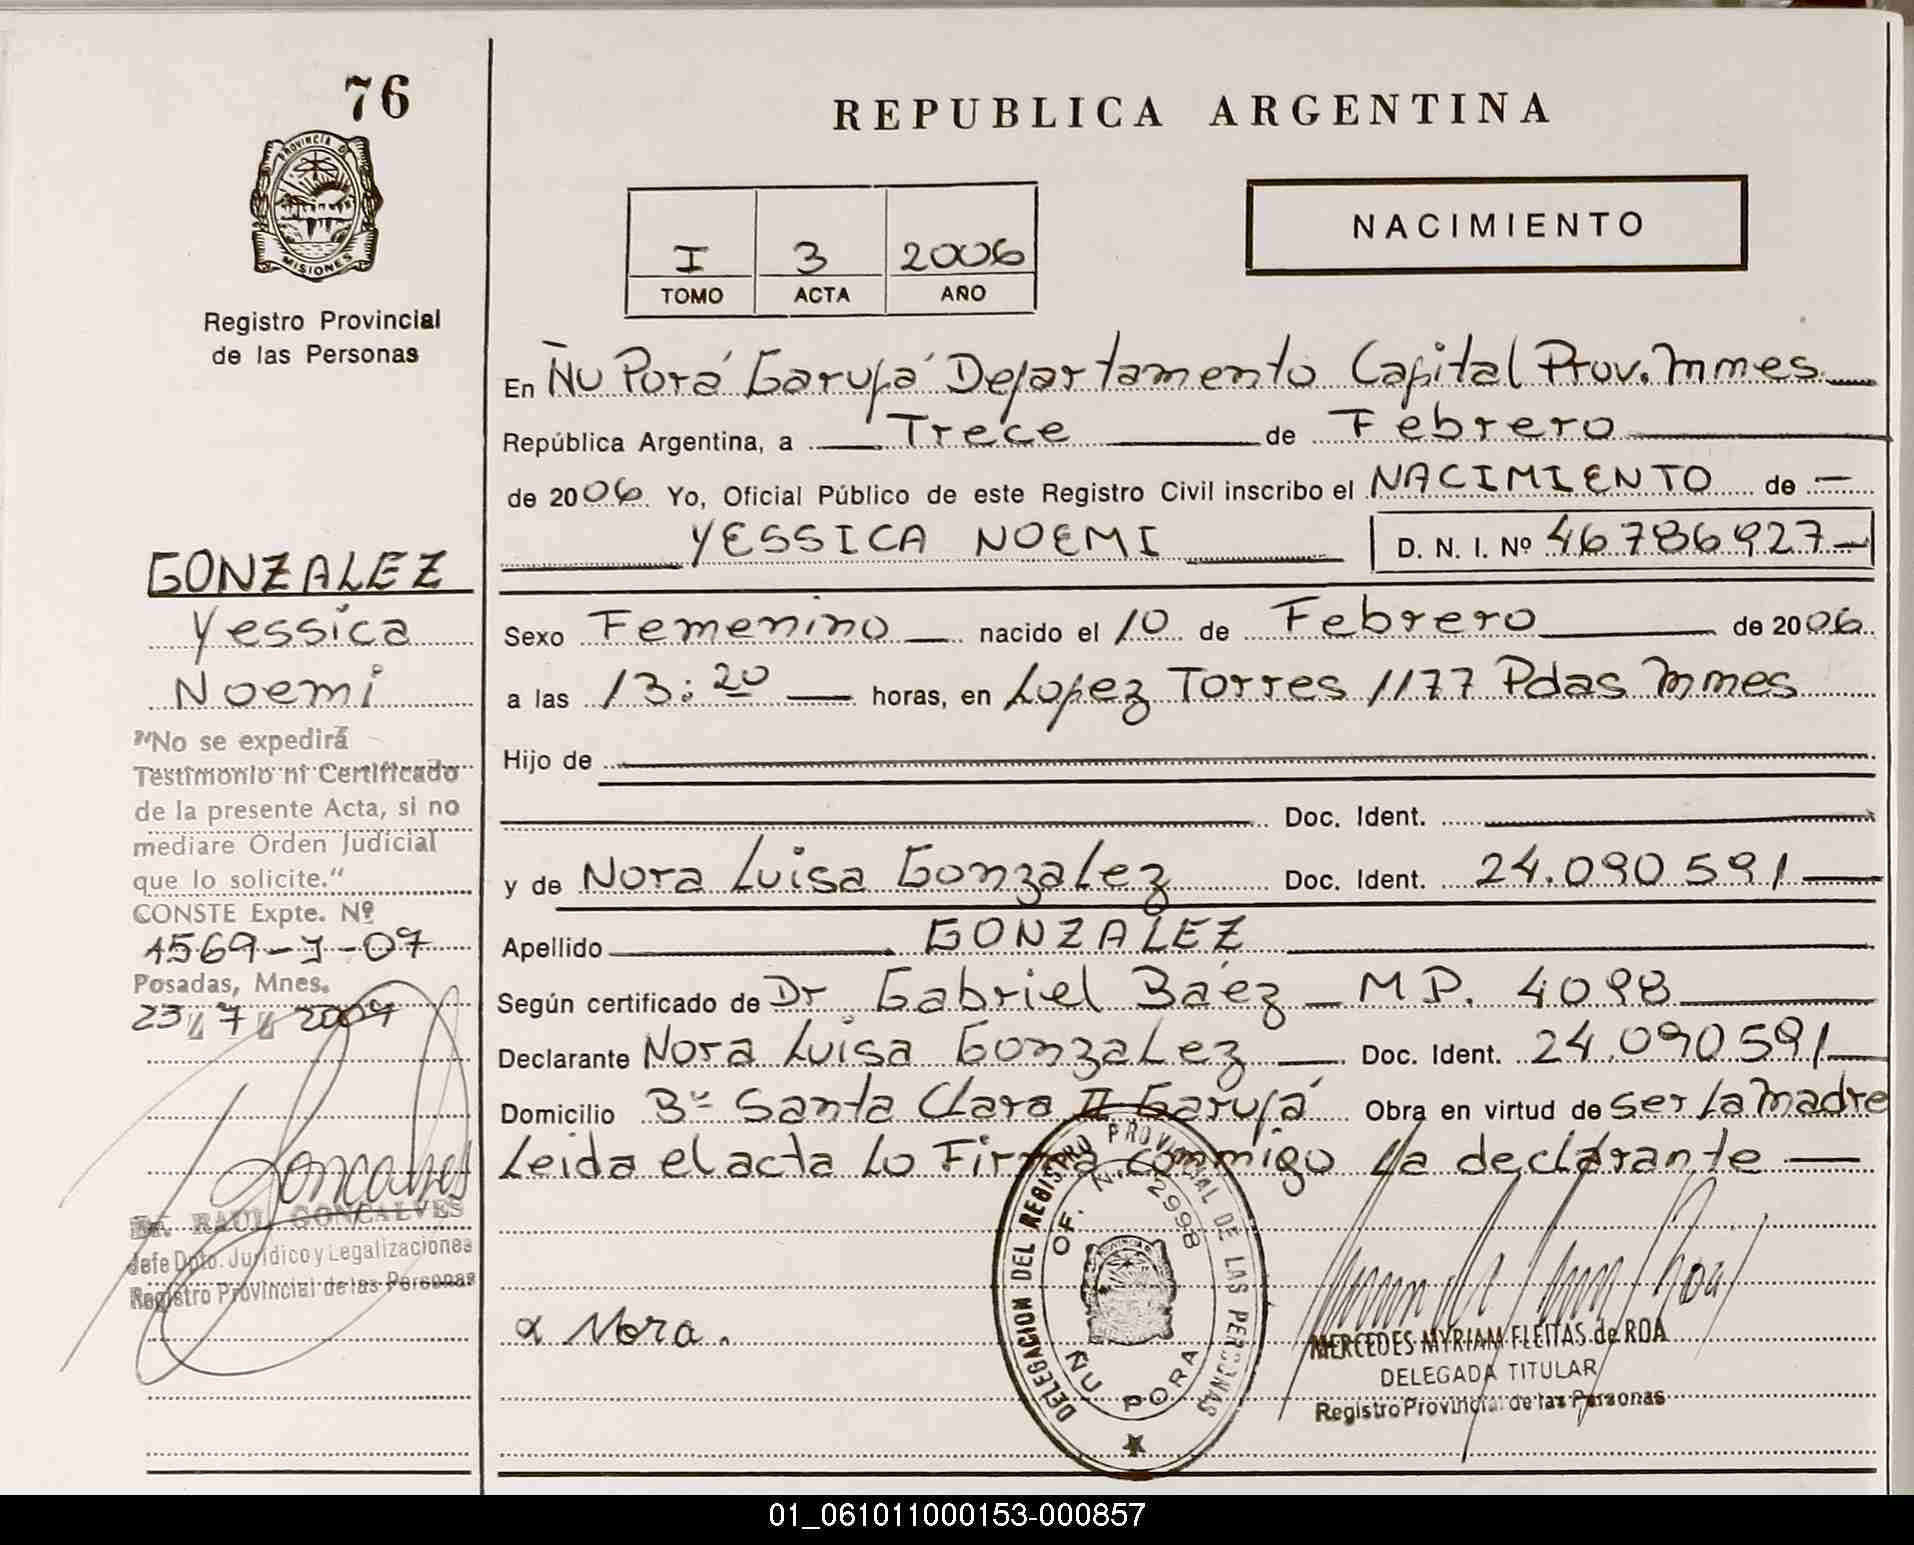 76
PROVINCIA D
MISIONES
Registro Provincial
de las Personas
REPUBLICA ARGENTINA
I 3 2006
TOMO ACTA AÑO
NACIMIENTO
En Ñu Porá Garupá Departamento Capital Prov. Mmes
República Argentina, a Trece de Febrero
de 2006. Yo, Oficial Público de este Registro Civil inscribo el NACIMIENTO de —
YESSICA NOEMI D. N. I. Nº 46786927—
Sexo Femenino nacido el 10 de Febrero de 2006
a las 13:20 — horas, en Lopez Torres 1177 Pdas Mmes
Hijo de
Doc. Ident.
y de Nora Luisa Gonzalez Doc. Ident. 24.090591—
Apellido GONZALEZ
Según certificado de Dr Gabriel Báez — MP. 4098
Declarante Nora Luisa Gonzalez — Doc. Ident. 24.090591—
Domicilio Bº Santa Clara II Garupá Obra en virtud de ser la madre
Leida el acta Lo Firma conmigo la declarante —
GONZALEZ
Yessica
Noemi
"No se expedirá
Testimonio ni Certificado
de la presente Acta, si no
mediare Orden Judicial
que lo solicite."
CONSTE Expte. Nº
1569-J-07
Posadas, Mnes.
23/7/2007
Dr. RAUL GONCALVES
Jefe Dpto. Jurídico y Legalizaciones
Registro Provincial de las Personas
Nora.
DELEGACION DEL REGISTRO PROVINCIAL DE LAS PERSONAS
OF. N. 2998
ÑU PORA
MERCEDES MYRIAM FLEITAS de ROA
DELEGADA TITULAR
Registro Provincial de las Personas
01_061011000153-000857